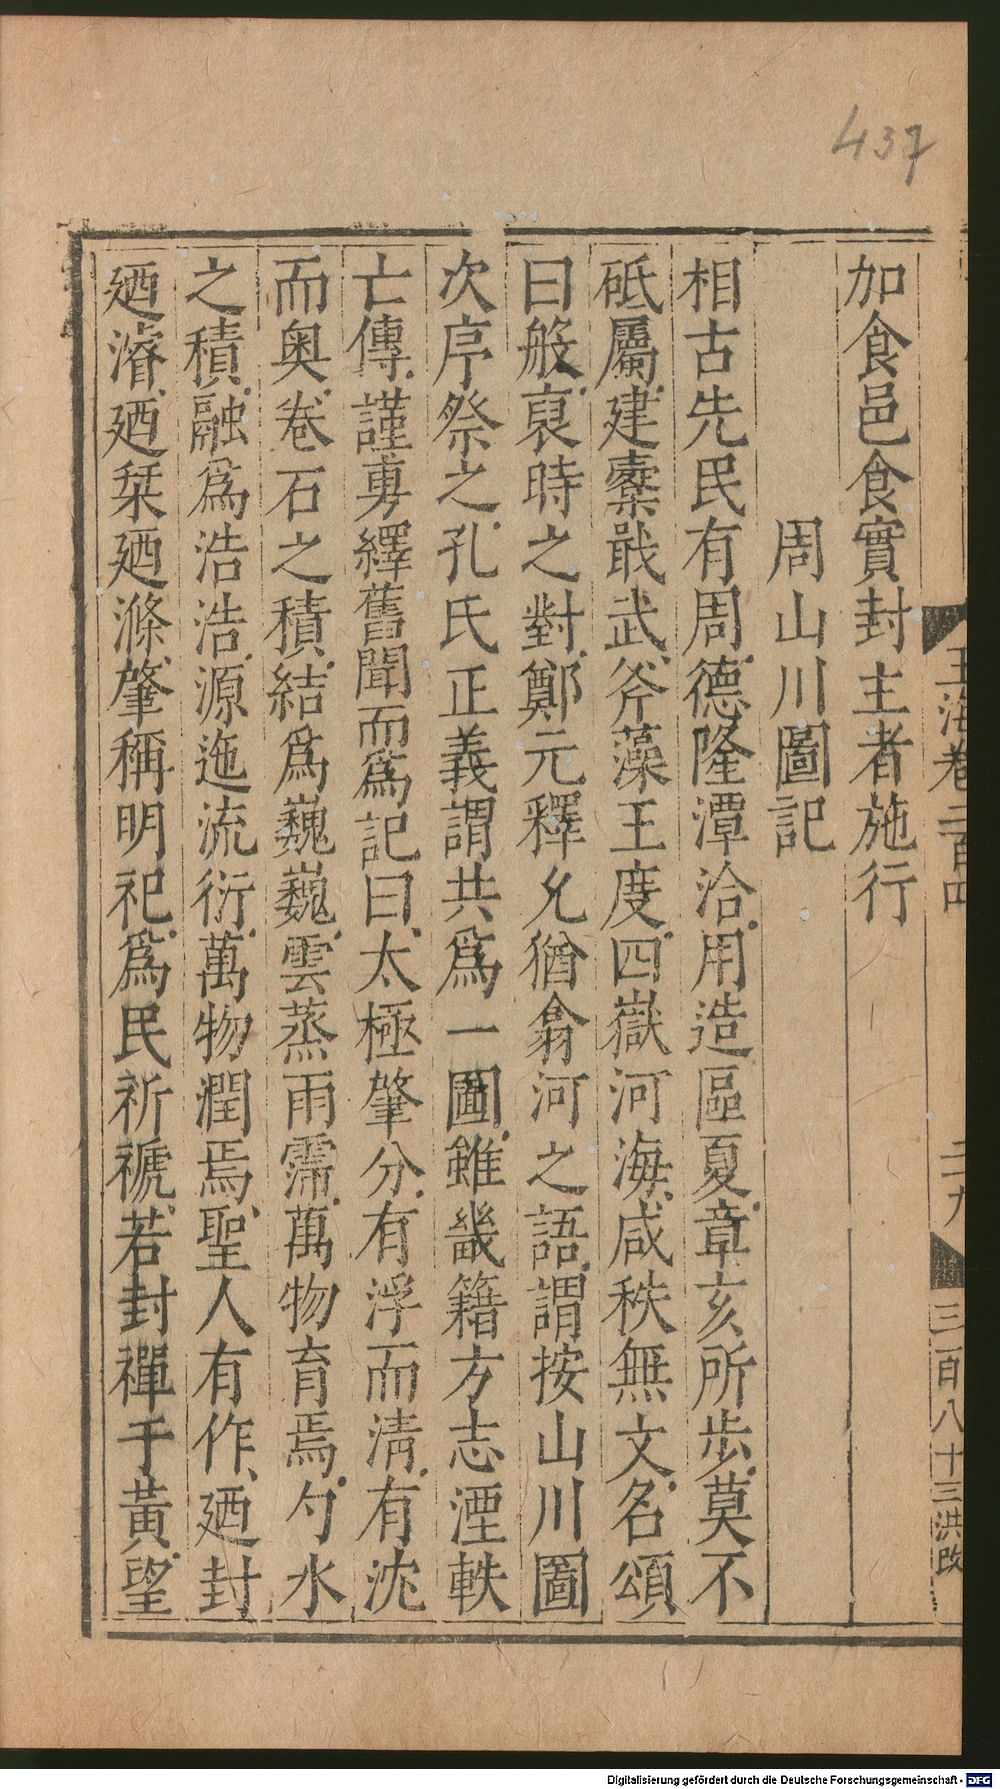 437
玉海卷二百四
二九
三百八十三洪改
加食邑食實封主者施行
周山川圖記
相古先民有周德隆潭洽用造區夏章亥所步莫不
砥屬建櫜戢武斧藻王度四嶽河海咸秩無文名頌
曰般裒時之對鄭元釋允猶翕河之語謂按山川圖
次序祭之孔氏正義謂共為一圖雖畿籍方志湮軼
亡傳謹旉繹舊聞而為記曰太極肇分有浮而淸有沈
而奥卷石之積結為巍巍雲蒸雨霈萬物育焉勺水
之積融為浩浩源迤流衍萬物潤焉聖人有作廼封
廼濬廼栞廼滌肇稱明祀為民祈禠若封禪于黃望
Digitalisierung gefördert durch die Deutsche Forschungsgemeinschaft - DFG